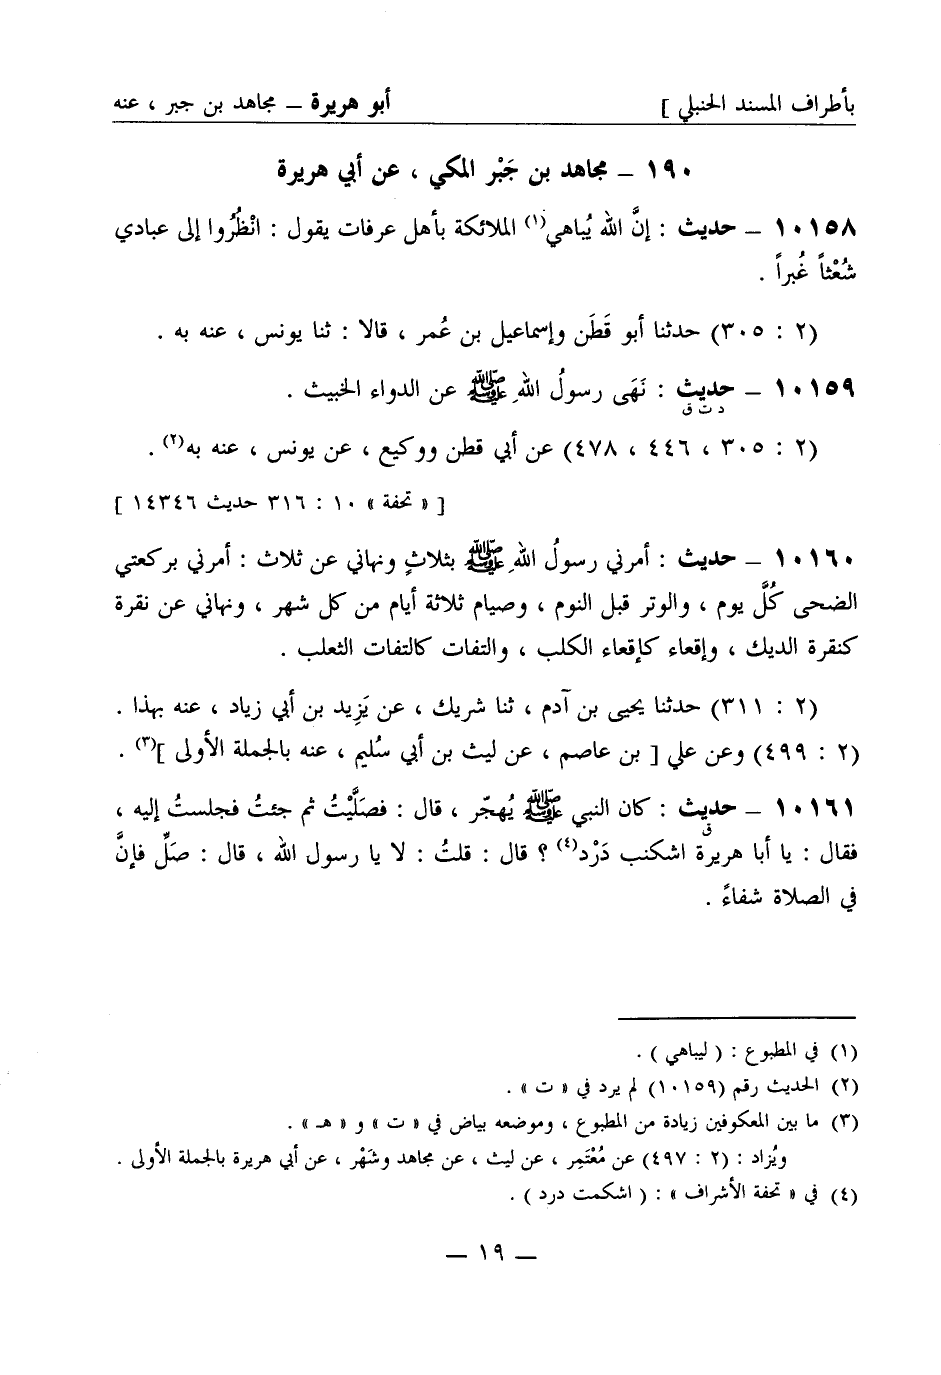 بأطراف المسند الحنبلي ] أبو هريرة – مجاهد بن جبر ، عنه
١٩٠ – مجاهد بن جَبْر المكي ، عن أبي هريرة
١٠١٥٨ – حديث : إنَّ الله يُباهي(١) الملائكة بأهل عرفات يقول : انْظُرُوا إلى عبادي
شُعْثاً غُبراً .
(٢ : ٣٠٥) حدثنا أبو قَطَن وإسماعيل بن عُمر ، قالا : ثنا يونس ، عنه به .
١٠١٥٩ – حديث : نَهَى رسولُ اللهِ ﷺ عن الدواء الخبيث .
د ت ق
(٢ : ٣٠٥ ، ٤٤٦ ، ٤٧٨) عن أبي قطن ووكيع ، عن يونس ، عنه به(٢) .
[ « تحفة » ١٠ : ٣١٦ حديث ١٤٣٤٦ ]
١٠١٦٠ – حديث : أمرني رسولُ اللهِ ﷺ بثلاثٍ ونهاني عن ثلاث : أمرني بركعتي
الضحى كُلَّ يوم ، والوتر قبل النوم ، وصيام ثلاثة أيام من كل شهر ، ونهاني عن نقرة
كنقرة الديك ، وإقعاء كإقعاء الكلب ، والتفات كالتفات الثعلب .
(٢ : ٣١١) حدثنا يحيى بن آدم ، ثنا شريك ، عن يَزِيد بن أبي زياد ، عنه بهذا .
(٢ : ٤٩٩) وعن علي [ بن عاصم ، عن ليث بن أبي سُليم ، عنه بالجملة الأولى ](٣) .
١٠١٦١ – حديث : كان النبي ﷺ يُهجّر ، قال : فصَلَّيْتُ ثم جئتُ فجلستُ إليه ،
ق
فقال : يا أبا هريرة اشكنب دَرْد(٤) ؟ قال : قلتُ : لا يا رسول الله ، قال : صَلِّ فإنَّ
في الصلاة شفاءً .
(١) في المطبوع : ( ليباهي ) .
(٢) الحديث رقم (١٠١٥٩) لم يرد في « ت » .
(٣) ما بين المعكوفين زيادة من المطبوع ، وموضعه بياض في « ت » و « هـ » .
ويُزاد : (٢ : ٤٩٧) عن مُعْتَمِر ، عن ليث ، عن مجاهد وشَهْر ، عن أبي هريرة بالجملة الأولى .
(٤) في « تحفة الأشراف » : ( اشكمت درد ) .
– ١٩ –